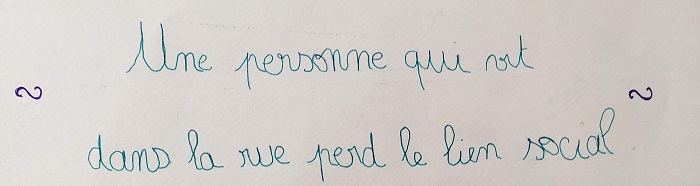 Une personne qui vit
dans la rue perd le lien social